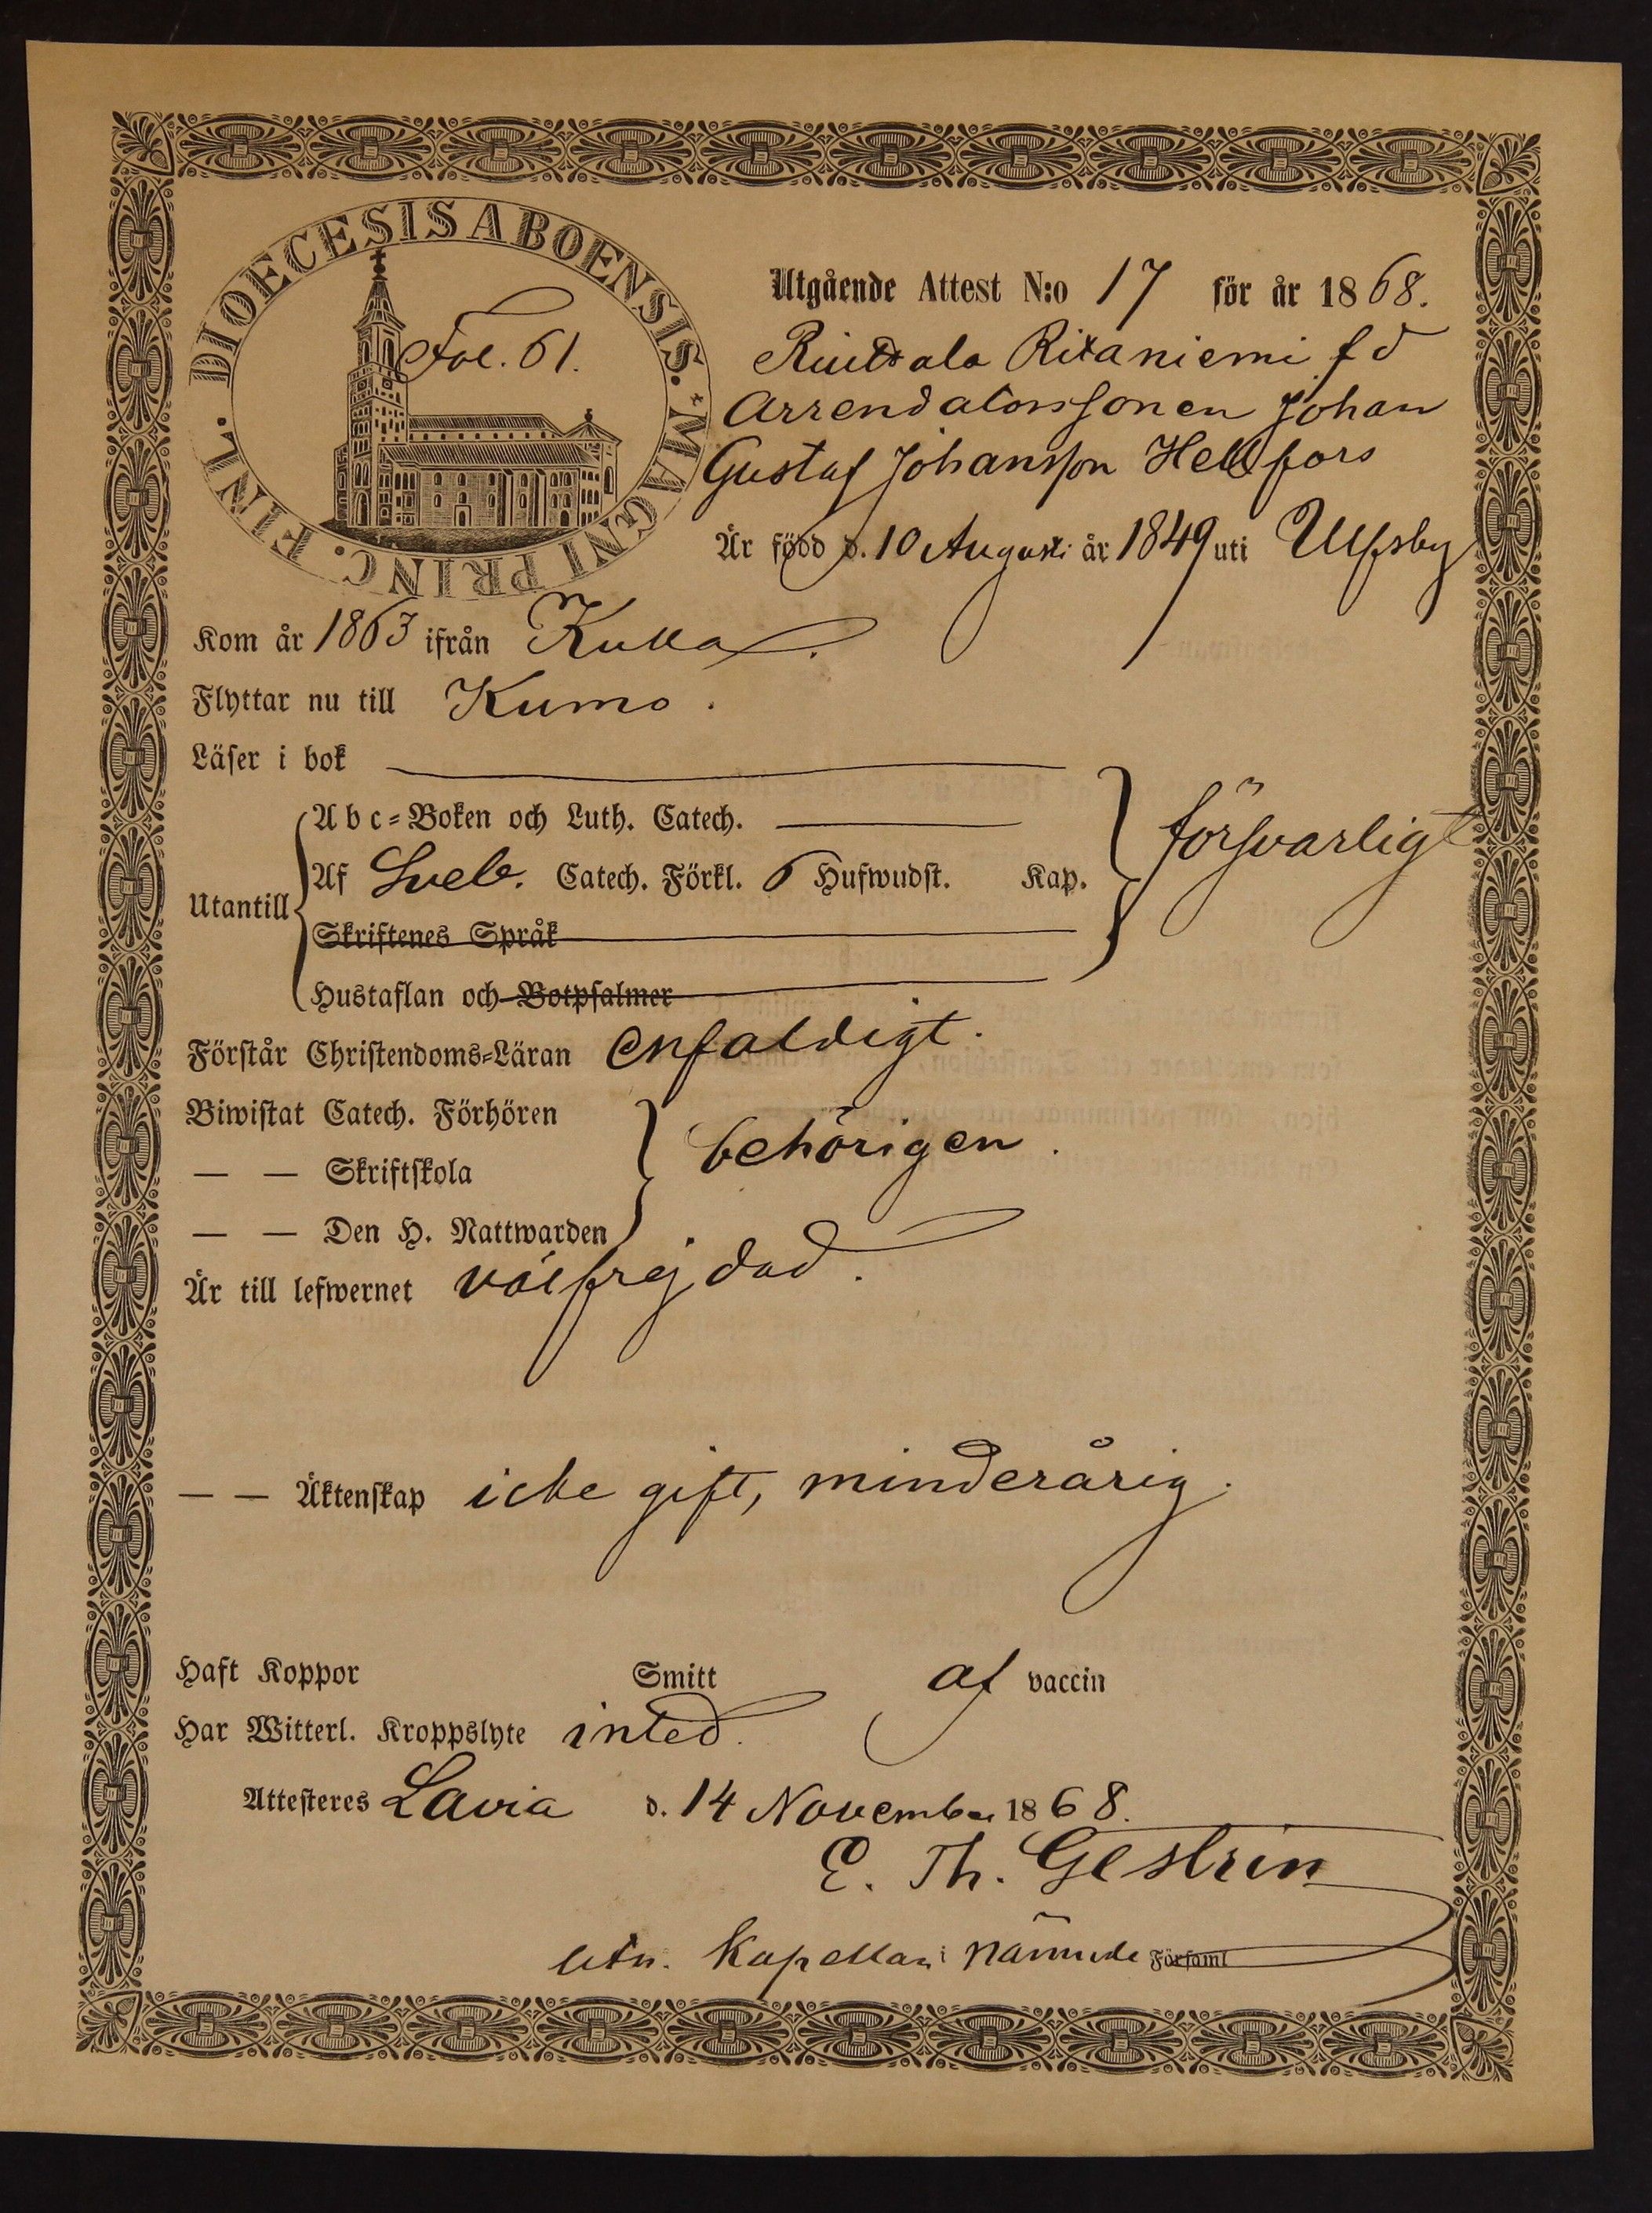 DIOECESIS ABOENSIS. MAGNI PRINC. FINL.
Fol. 61.
Utgående Attest N:o 17 för år 1868.
Ritaniemi f d
Arrendatorssonen Johan
Gustaf Johansson Hellfors
Är född d. 10 Augusti år 1849 uti Ulfsby
Kom år 1863 ifrån Kulla.
Flyttar nu till Kumo.
Läser i bok
Abc-Boken och Luth. Catech.
Utantill
Af Sveb. Catech. Förkl. 6 Hufwudst. Kap.
försvarligt
Skriftenes Språk
Hustaflan och Botpsalmer
Förstår Christendoms-Läran enfaldigt.
Biwistat Catech. Förhören
— — Skriftskola
behörigen.
— — Den H. Nattwarden
Är till lefwernet välfrejdad.
— — Äktenskap icke gift, minderårig.
Haft Koppor Smitt af vaccin
Har Witterl. Kroppslyte inted.
Attesteres Lavia d. 14 November 1868.
E. Th. Gestrin
Kapellan i nämnde Församl